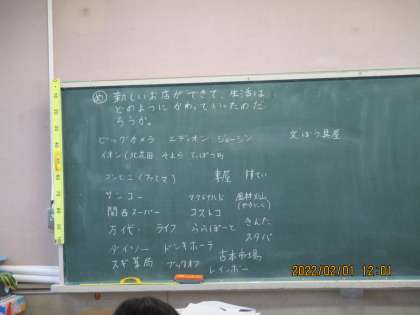 め 新しいお店ができて、生活は
どのように かわっていったのだ
ろうか。
ビッグカメラ エディオン ジョーシン 文ぼう具屋
イオン(北花田 そよら てっぽう町
コンビニ(ファミマ) 車屋
サンコー マクドナルド
関西スーパー コストコ
万代・ライフ ららぽーと きんた
スタバ
ダイソー ドンキホーテ
スギ薬局 ブックオフ 古本市場
レインボー
2022/02/01 12:01